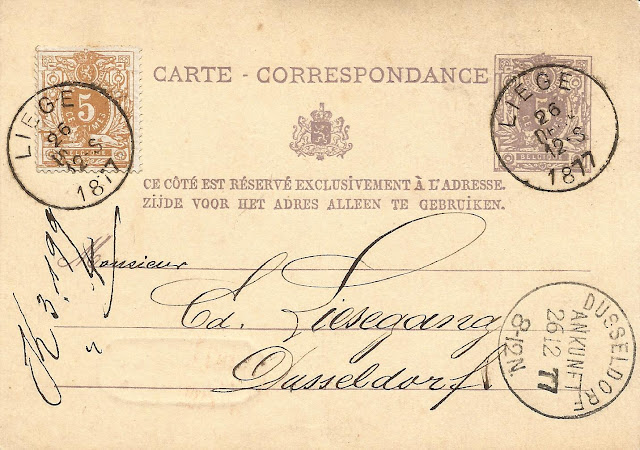 CARTE - CORRESPONDANCE
5
CENTIMES
LIEGE
26
DEC
12-S
1877
LIEGE
26
DEC
12-S
1877
CE CÔTÉ EST RÉSERVÉ EXCLUSIVEMENT À L'ADRESSE.
ZIJDE VOOR HET ADRES ALLEEN TE GEBRUIKEN.
Monsieur
Ed. Liesegang
Dusseldorf
DUSSELDORF
ANKUNFT
26 12 77
8-12N